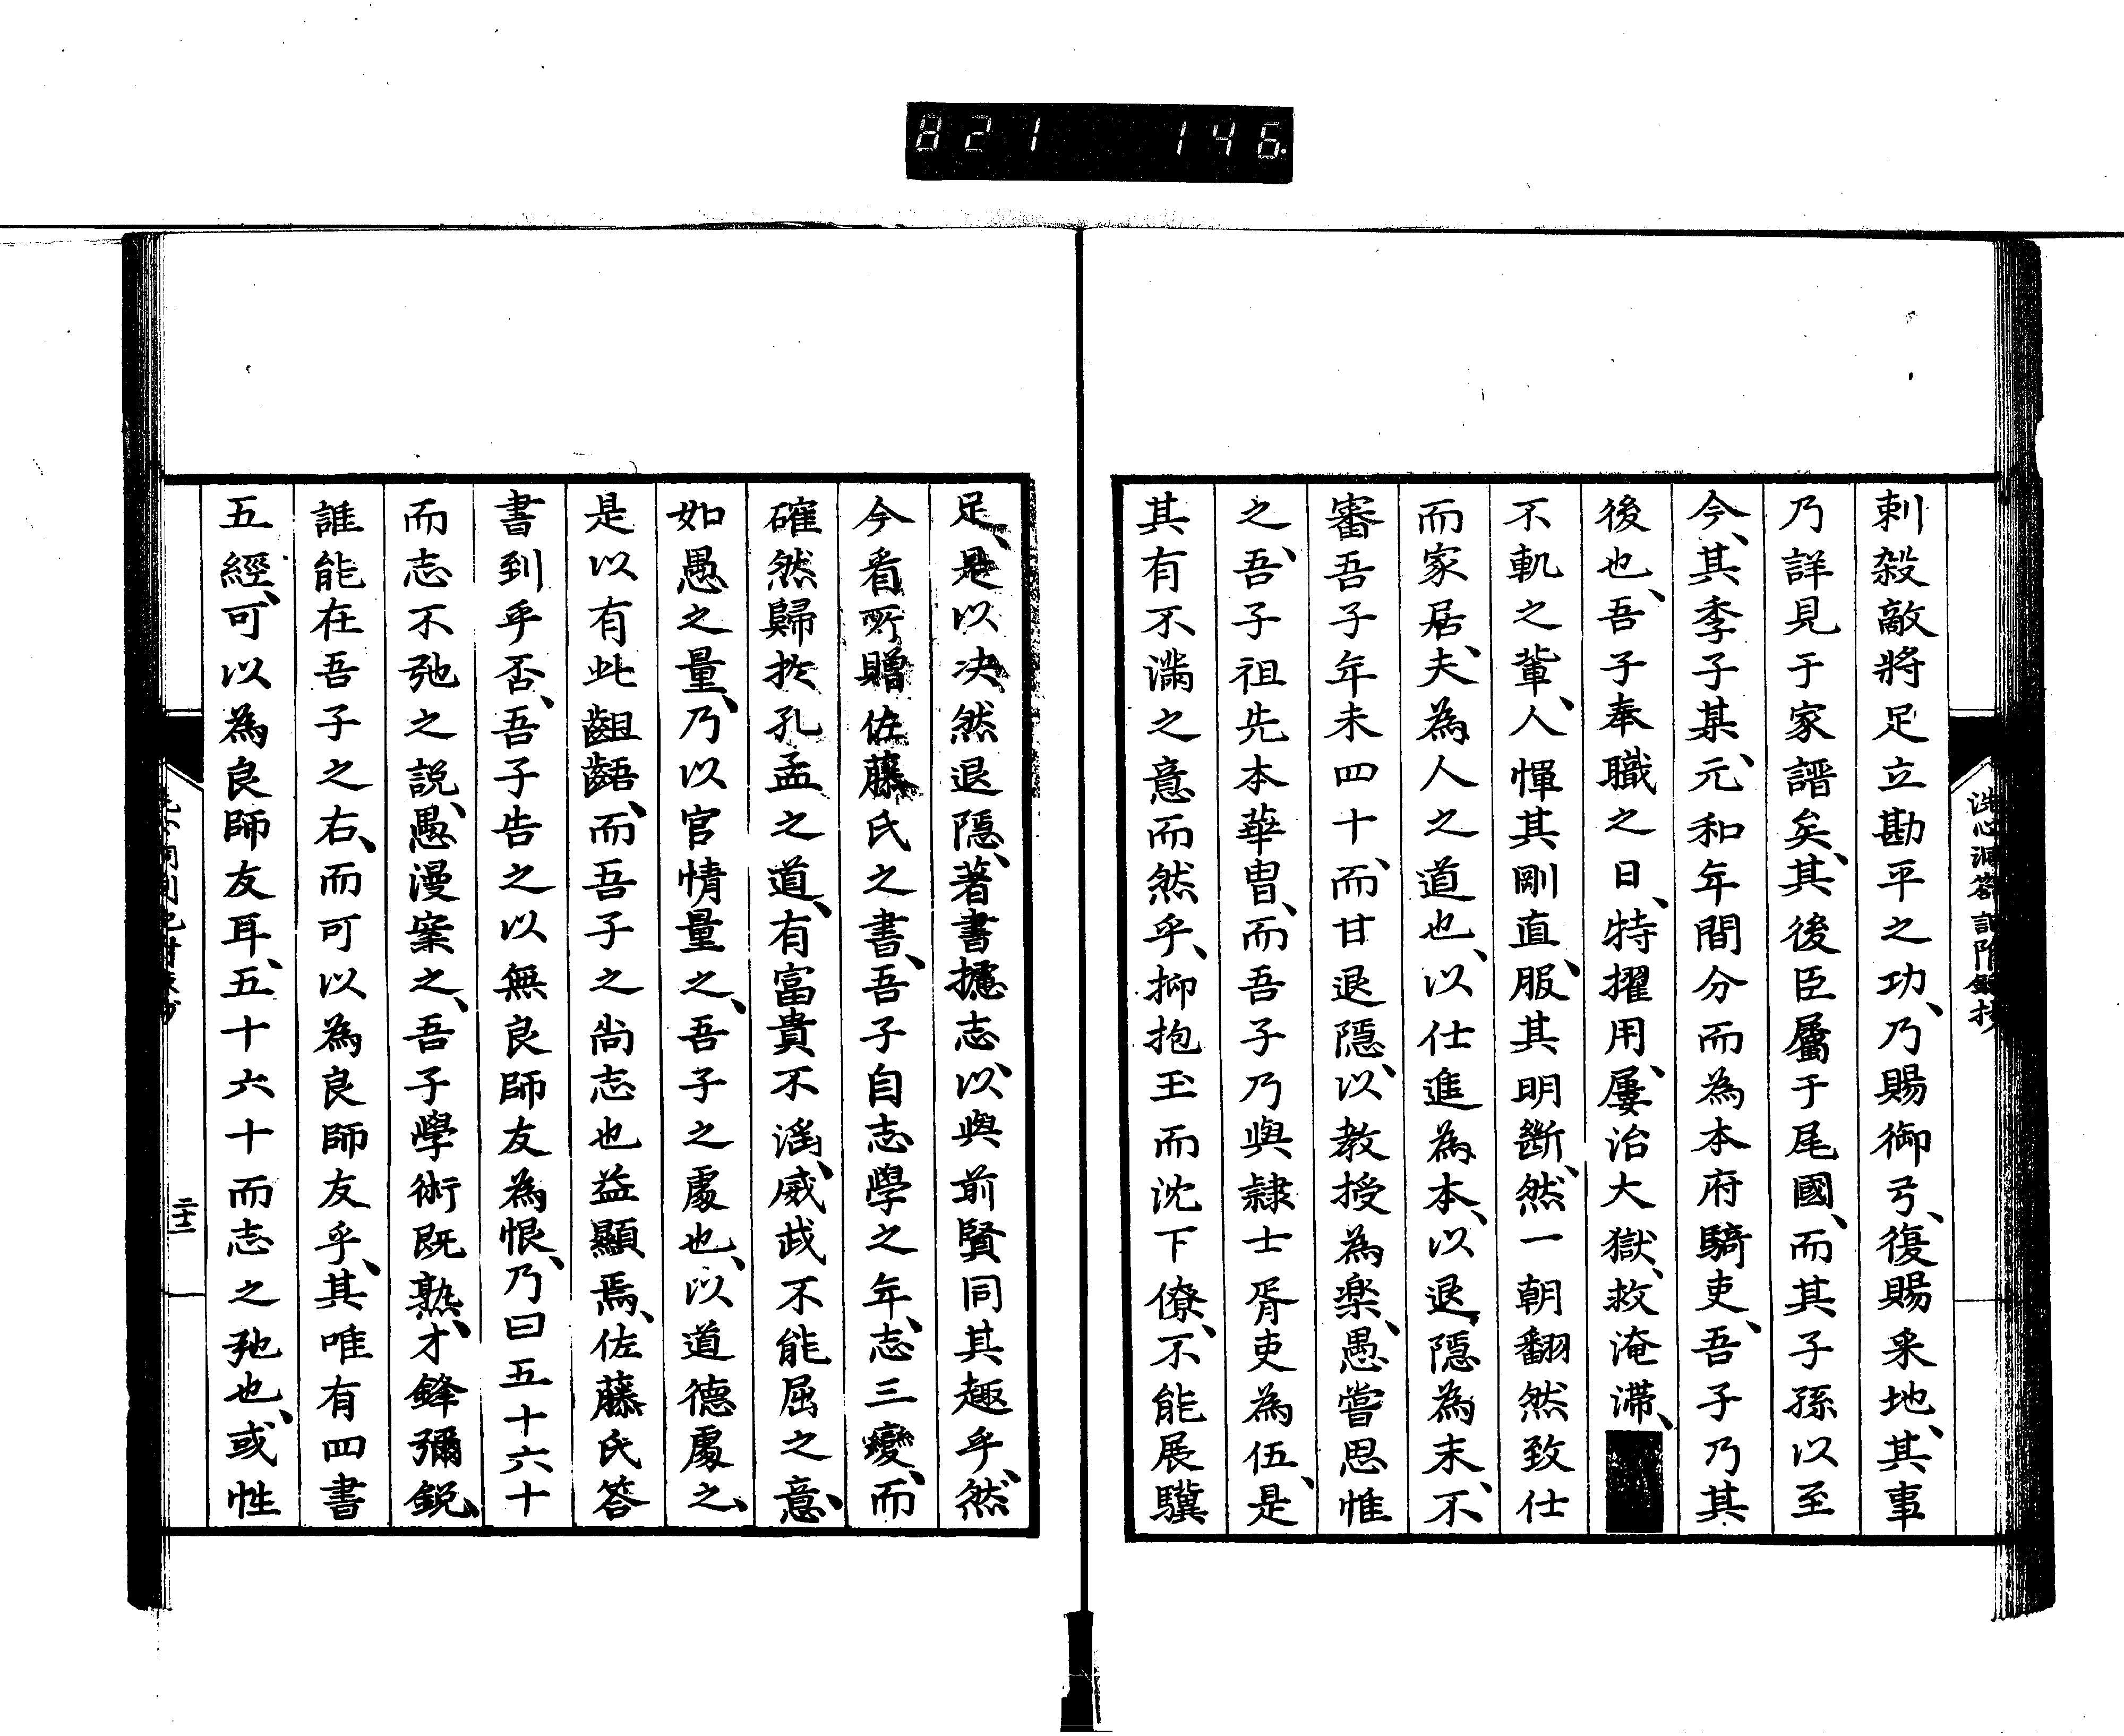 821 146
洗心洞箚記附録抄
刺殺敵將足立勘平之功、乃賜御弓、復賜采地、其事
乃詳見于家譜矣、其後臣屬于尾國、而其子孫以至
今、其季子某、元和年間分而為本府騎吏、吾子乃其
後也、吾子奉職之日、特擢用、屢治大獄、救淹滯、
不軌之輩、人憚其剛直、服其明斷、然一朝翻然致仕
而家居、夫為人之道也、以仕進為本、以退隱為末、不
審吾子年未四十、而甘退隱、以教授為楽、愚嘗思惟
之、吾子祖先本華冑、而吾子乃與隷士胥吏為伍、是
其有不滿之意而然乎、抑抱玉而沈下僚、不能展驥
足、是以决然退隱、著書攄志、以與前賢同其趣乎、然
今看所贈佐藤氏之書、吾子自志學之年、志三變、而
確然歸於孔孟之道、有富貴不滛、威武不能屈之意、
如愚之量、乃以官情量之、吾子之處也、以道德處之、
是以有此齟齬、而吾子之尚志也益顯焉、佐藤氏答
書到乎否、吾子告之以無良師友為恨、乃曰五十六十
而志不弛之説、愚漫案之、吾子學術既熟、才鋒彌鋭、
誰能在吾子之右、而可以為良師友乎、其唯有四書
五經、可以為良師友耳、五十六十而志之弛也、或性
二十二